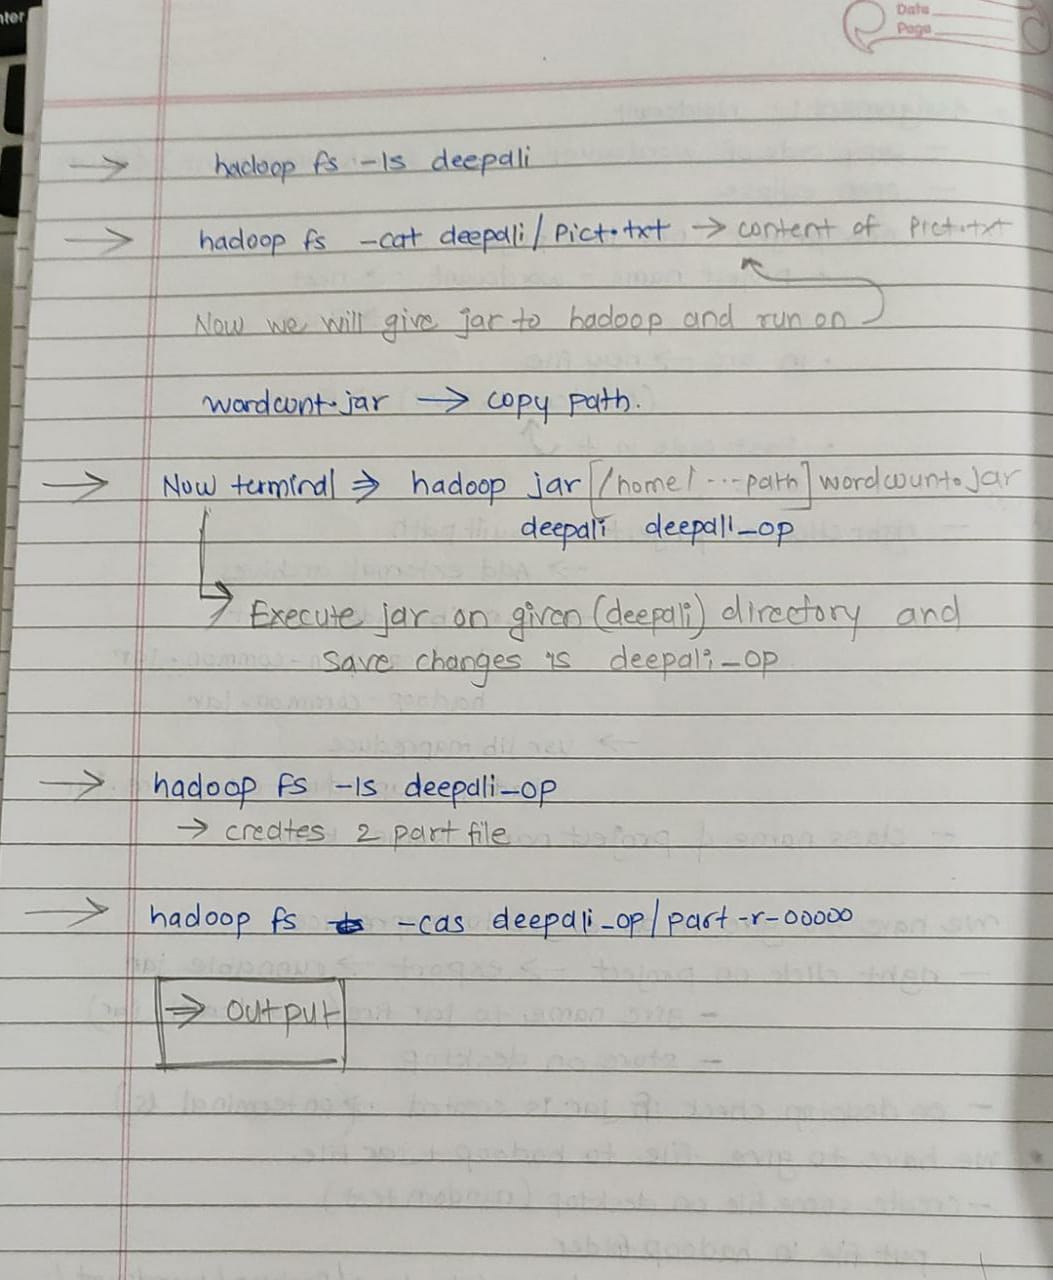 nter
Data
Page
→ hadoop fs -ls deepali
→ hadoop fs -cat deepali/Pict.txt → content of Pict.txt
Now we will give jar to hadoop and run on
wordcont.jar → copy path.
→ Now terminal ⇒ hadoop jar [/home/...path] wordcount.jar
deepali deepali_op
→ Execute jar on given (deepali) directory and
save changes is deepali_op
→ hadoop fs -ls deepali_op
→ creates 2 part file
→ hadoop fs -cas deepali_op/part-r-00000
⇒ output